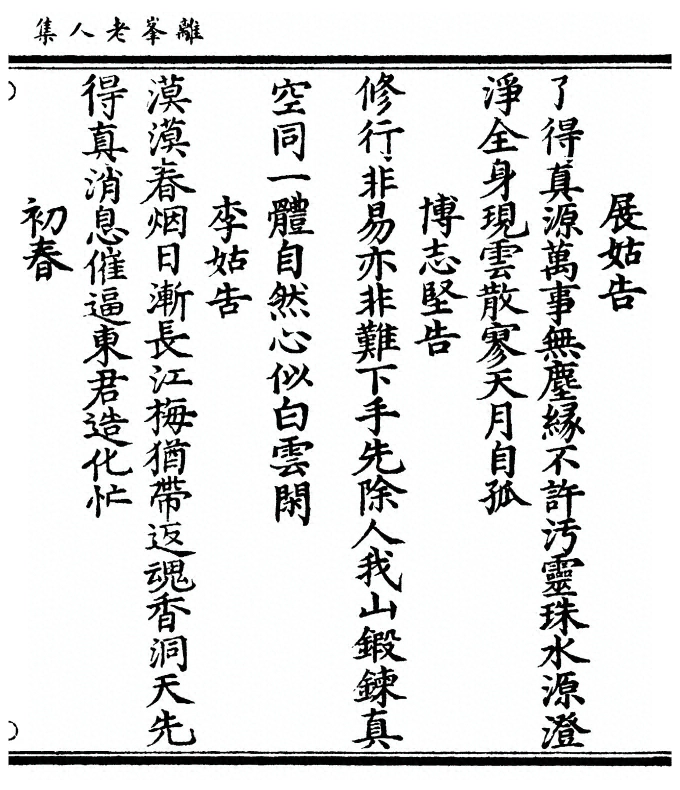 離峯老人集
展姑告
了得真源萬事無塵緣不許汚靈珠水源澄
淨全身現雲散寥天月自孤
博志堅告
修行非易亦非難下手先除人我山鍛鍊真
空同一體自然心似白雲閑
李姑告
漠漠春烟日漸長江梅猶帶返魂香洞天先
得真消息催逼東君造化忙
初春